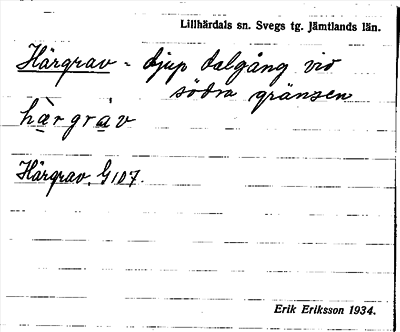 Lillhärdals sn. Svegs tg. Jämtlands län.
Härgrav - djup dalgång vid
södra gränsen
hä̀rgra̱v
Härgrav, G107.
Erik Eriksson 1934.